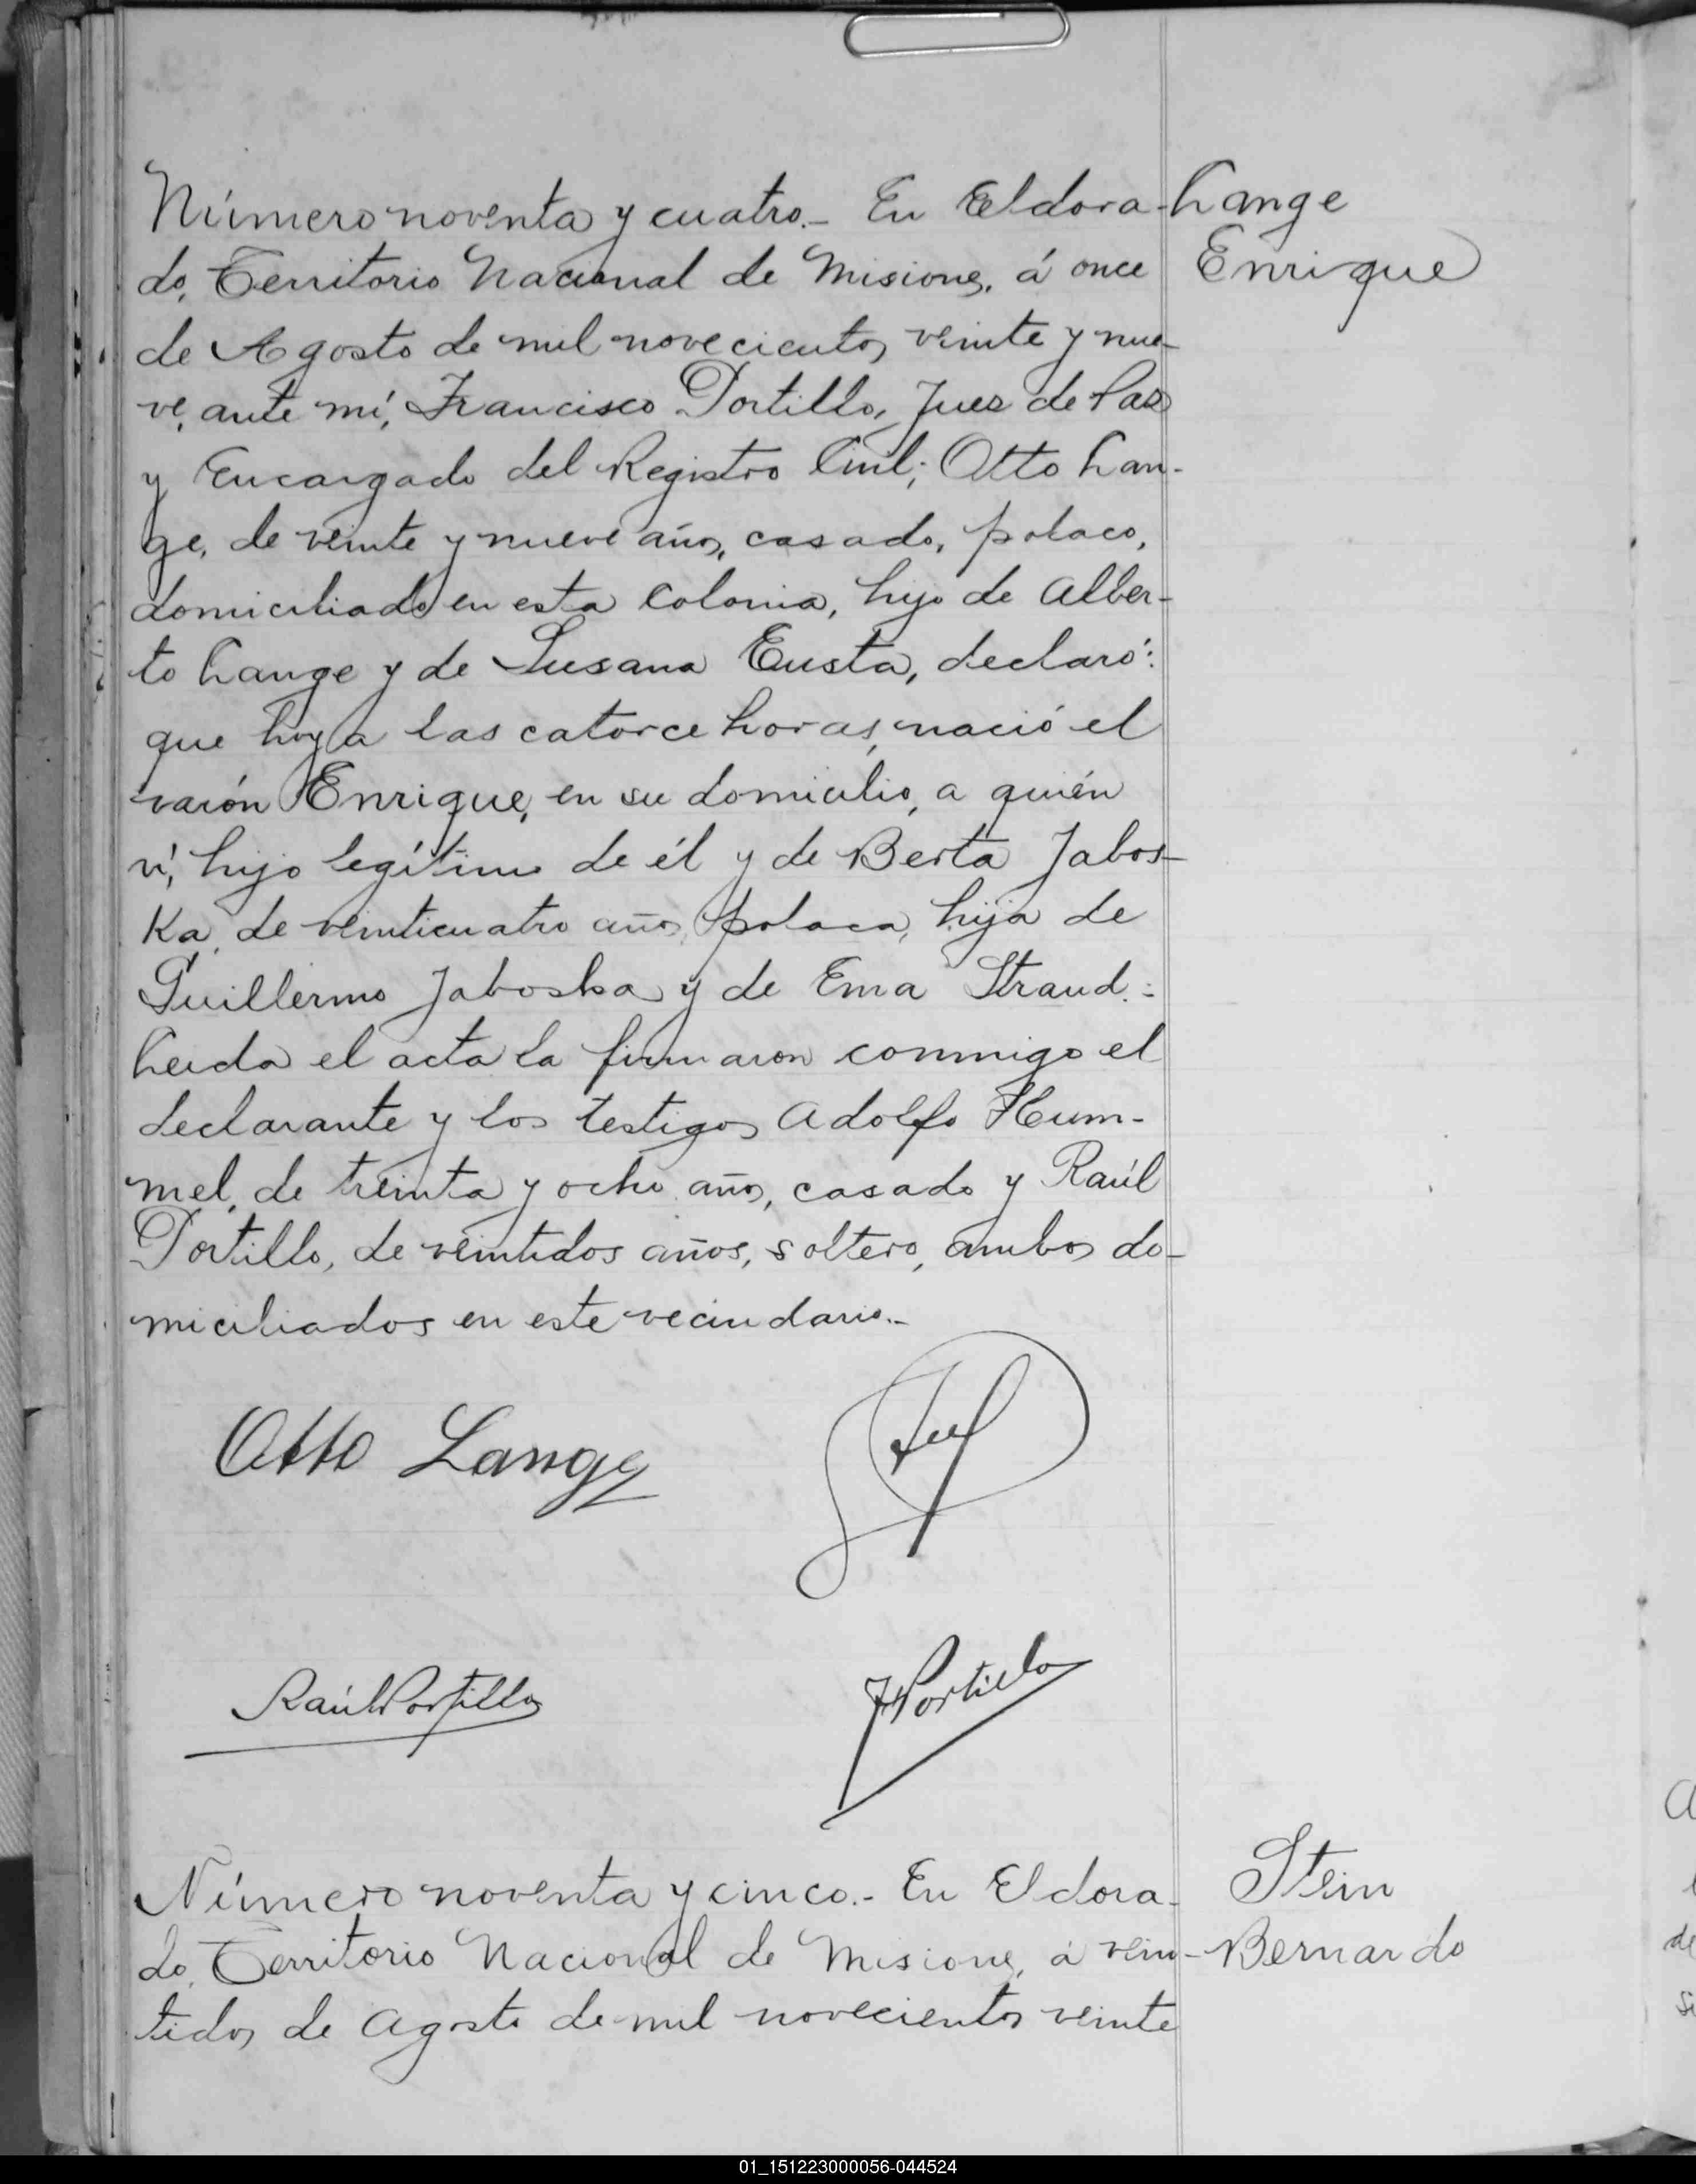 Número noventa y cuatro.- En Eldora-
do, Territorio Nacional de Misiones, á once
de Agosto de mil novecientos veinte y nue-
ve, ante mí, Francisco Portillo, Juez de Paz
y Encargado del Registro Civil; Otto Lan-
ge, de veinte y nueve años, casado, polaco,
domiciliado en esta Colonia, hijo de Alber-
to Lange y de Susana Eusta, declaró:
que hoy a las catorce horas, nació el
varón Enrique, en su domicilio, a quién
ví, hijo legítimo de él y de Berta Jabos-
ka, de veinticuatro años, polaca, hija de
Guillermo Jaboska y de Ema Straud.:
Leida el acta la firmaron conmigo el
declarante y los testigos Adolfo Hum-
mel, de treinta y ocho años, casado y Raúl
Portillo, de veintidos años, soltero, ambos do-
miciliados en este vecindario.-
Lange
Enrique
Otto Lange
Raúl Portillo
FPortillo
Número noventa y cinco.- En Eldora-
do, Territorio Nacional de Misiones, á vein-
tidos de Agosto de mil novecientos veinte
Stein
Bernardo
de
01_151223000056-044524